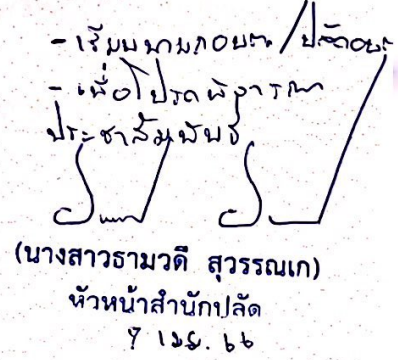 - เรียน นายกอบต. / ปลัดอบต
- เพื่อโปรดพิจารณา
ประชาสัมพันธ์
(นางสาวธามวดี สุวรรณเก)
หัวหน้าสำนักปลัด
7 เมย. 66